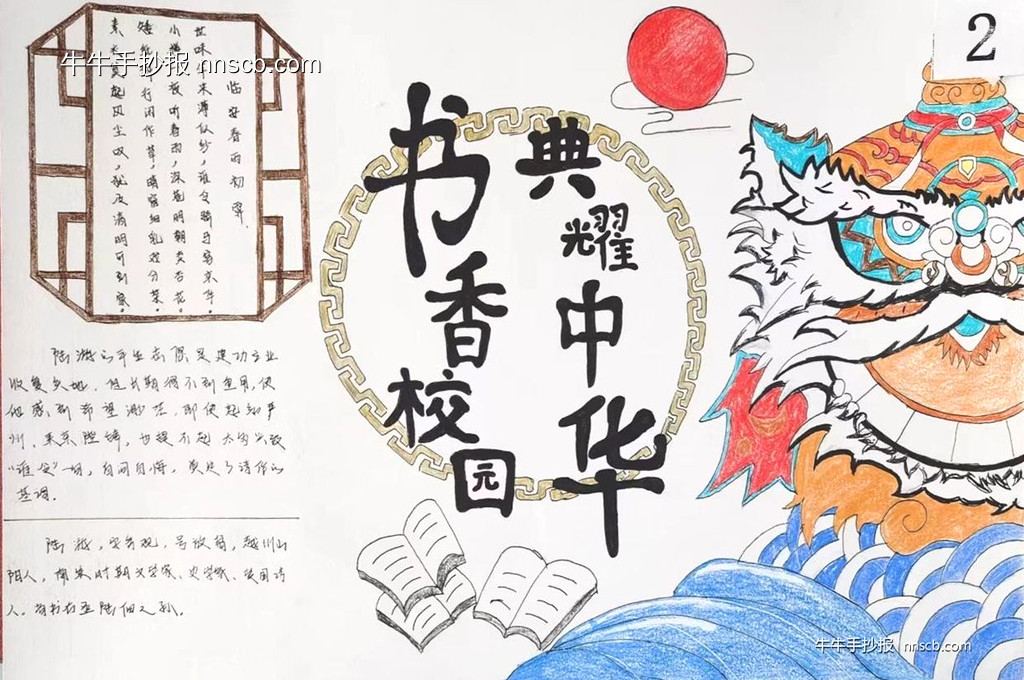 2
牛牛手抄报 nnscb.com
临安春雨初霁
世味年来薄似纱,谁令骑马客京华。
小楼一夜听春雨,深巷明朝卖杏花。
矮纸斜行闲作草,晴窗细乳戏分茶。
素衣莫起风尘叹,犹及清明可到家。
典耀中华
书香校园
陆游的平生志愿是建功立业
收复失地,但长期得不到重用,使
他感到希望渺茫,即使起知严
州、来京陛辞,也提不起太高兴致
“谁令”一句,自问自悔,奠定了诗作的
基调。
陆游,字务观,号放翁,越州山
阴人,南宋时期文学家、史学家、爱国诗
人。尚书右丞陆佃之孙。
牛牛手抄报 | nnscb.com